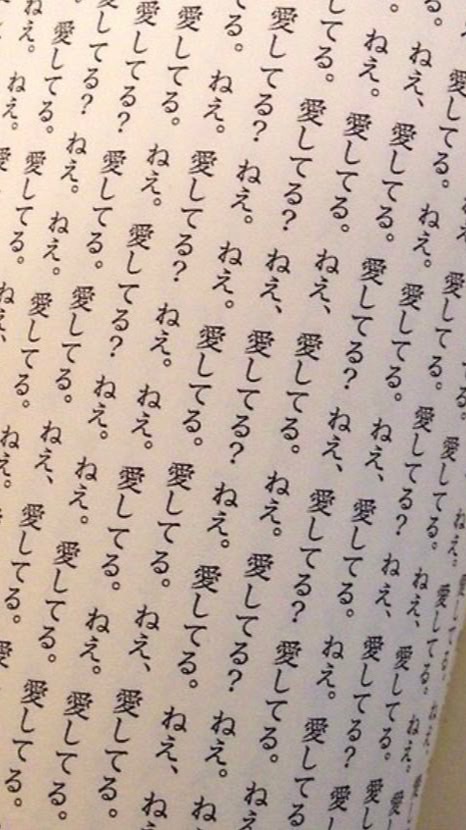 愛してる。
ねえ。愛してる。ねえ。愛
てる。愛してる。ねえ、愛してる。愛し
愛してる。愛してる？ねえ、愛してる？愛し
愛してる。ねえ。愛してる。ねえ、愛してる。ねえ。愛してる
る。ねえ、愛してる。愛してる？ねえ、愛してる？愛してる。ねえ
。ねえ。愛してる。ねえ、愛してる。ねえ。愛してる？ねえ。ねえ
してる。愛してる？ねえ、愛してる？ねえ。愛してる。ねえ、ねえ
愛してる？ねえ。ねえ。愛してる。愛してる。ねえ、愛してる。
る。ねえ。愛してる？ねえ。ねえ。愛してる。ねえ。愛してる。
愛してる。ねえ。愛してる？ねえ。ねえ。愛してる。愛してる。
愛してる？愛してる。愛してる。ねえ、愛してる。愛
してる？ねえ。ねえ。愛してる。ねえ。
愛してる。愛してる。ねえ、
ねえ。ねえ。愛